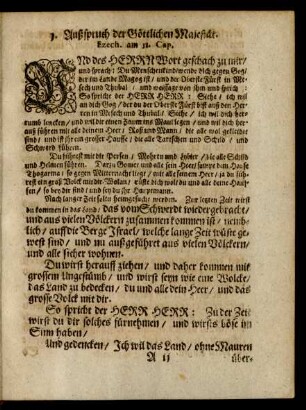 3. Außspruch der Göttlichen Majestät.
Ezech. am 38. Cap.
UNd des HERRN Wort geschach zu mir/
und sprach: Du Menschenkind wende dich gegen Gog/
der im Lande Magog ist/ und der Oberste Fürst in
Mesech und Thubal: und weissage von ihm und sprich:
So spricht der HERR HERR: Siehe/ ich wil
an dich Gog/ der du der Oberste Fürst bist auß den Her-
ren in Mesech und Thubal/ Siehe/ ich wil dich her-
rumb lencken/ und wil dir einen Zaum ins Maul legen/ und wil dich her-
auß führen mit alle deinem Heer/ Roß und Mann/ die alle wol gekleidet
sind/ und ist ihr ein grosser Hauffe/ die alle Tartschen und Schild/ und
Schwerd führen.
Du führest mit dir Persen/ Mohren und Lybier/ die alle Schild
und Helmen führen. Darzu Gomer und alle sein Heer/ sampt dem Hause
Thogarma/ so gegen Mitternacht ligt/ mit alle seinem Heer/ ja du füh-
rest ein groß Volck mit dir. Wolan/ rüste dich wol/ du und alle deine Hauf-
fen/ so bey dir sind/ und sey du ihr Hauptman.
Nach langer Zeit solstu heimgesucht werden. Zur letzten Zeit wirst
du kommen in das Land/ das vom Schwerdt wiedergebracht/
und aus vielen Völckern zusammen kommen ist/ nemb-
lich/ auff die Berge Israel/ welche lange Zeit wüste ge-
west sind/ und nu außgeführet aus vielen Völckern/
und alle sicher wohnen.
Du wirst herauff ziehen/ und daher kommen mit
grossem Ungestümb/ und wirst seyn wie eine Wolcke/
das Land zu bedecken/ du und alle dein Heer/ und das
grosse Volck mit dir.
So spricht der HERR HERR: Zu der Zeit
wirst du dir solches fürnehmen/ und wirsts böse im
Sinn haben/
Und gedencken/ Ich wil das Land/ ohne Mauren
A ij
über-